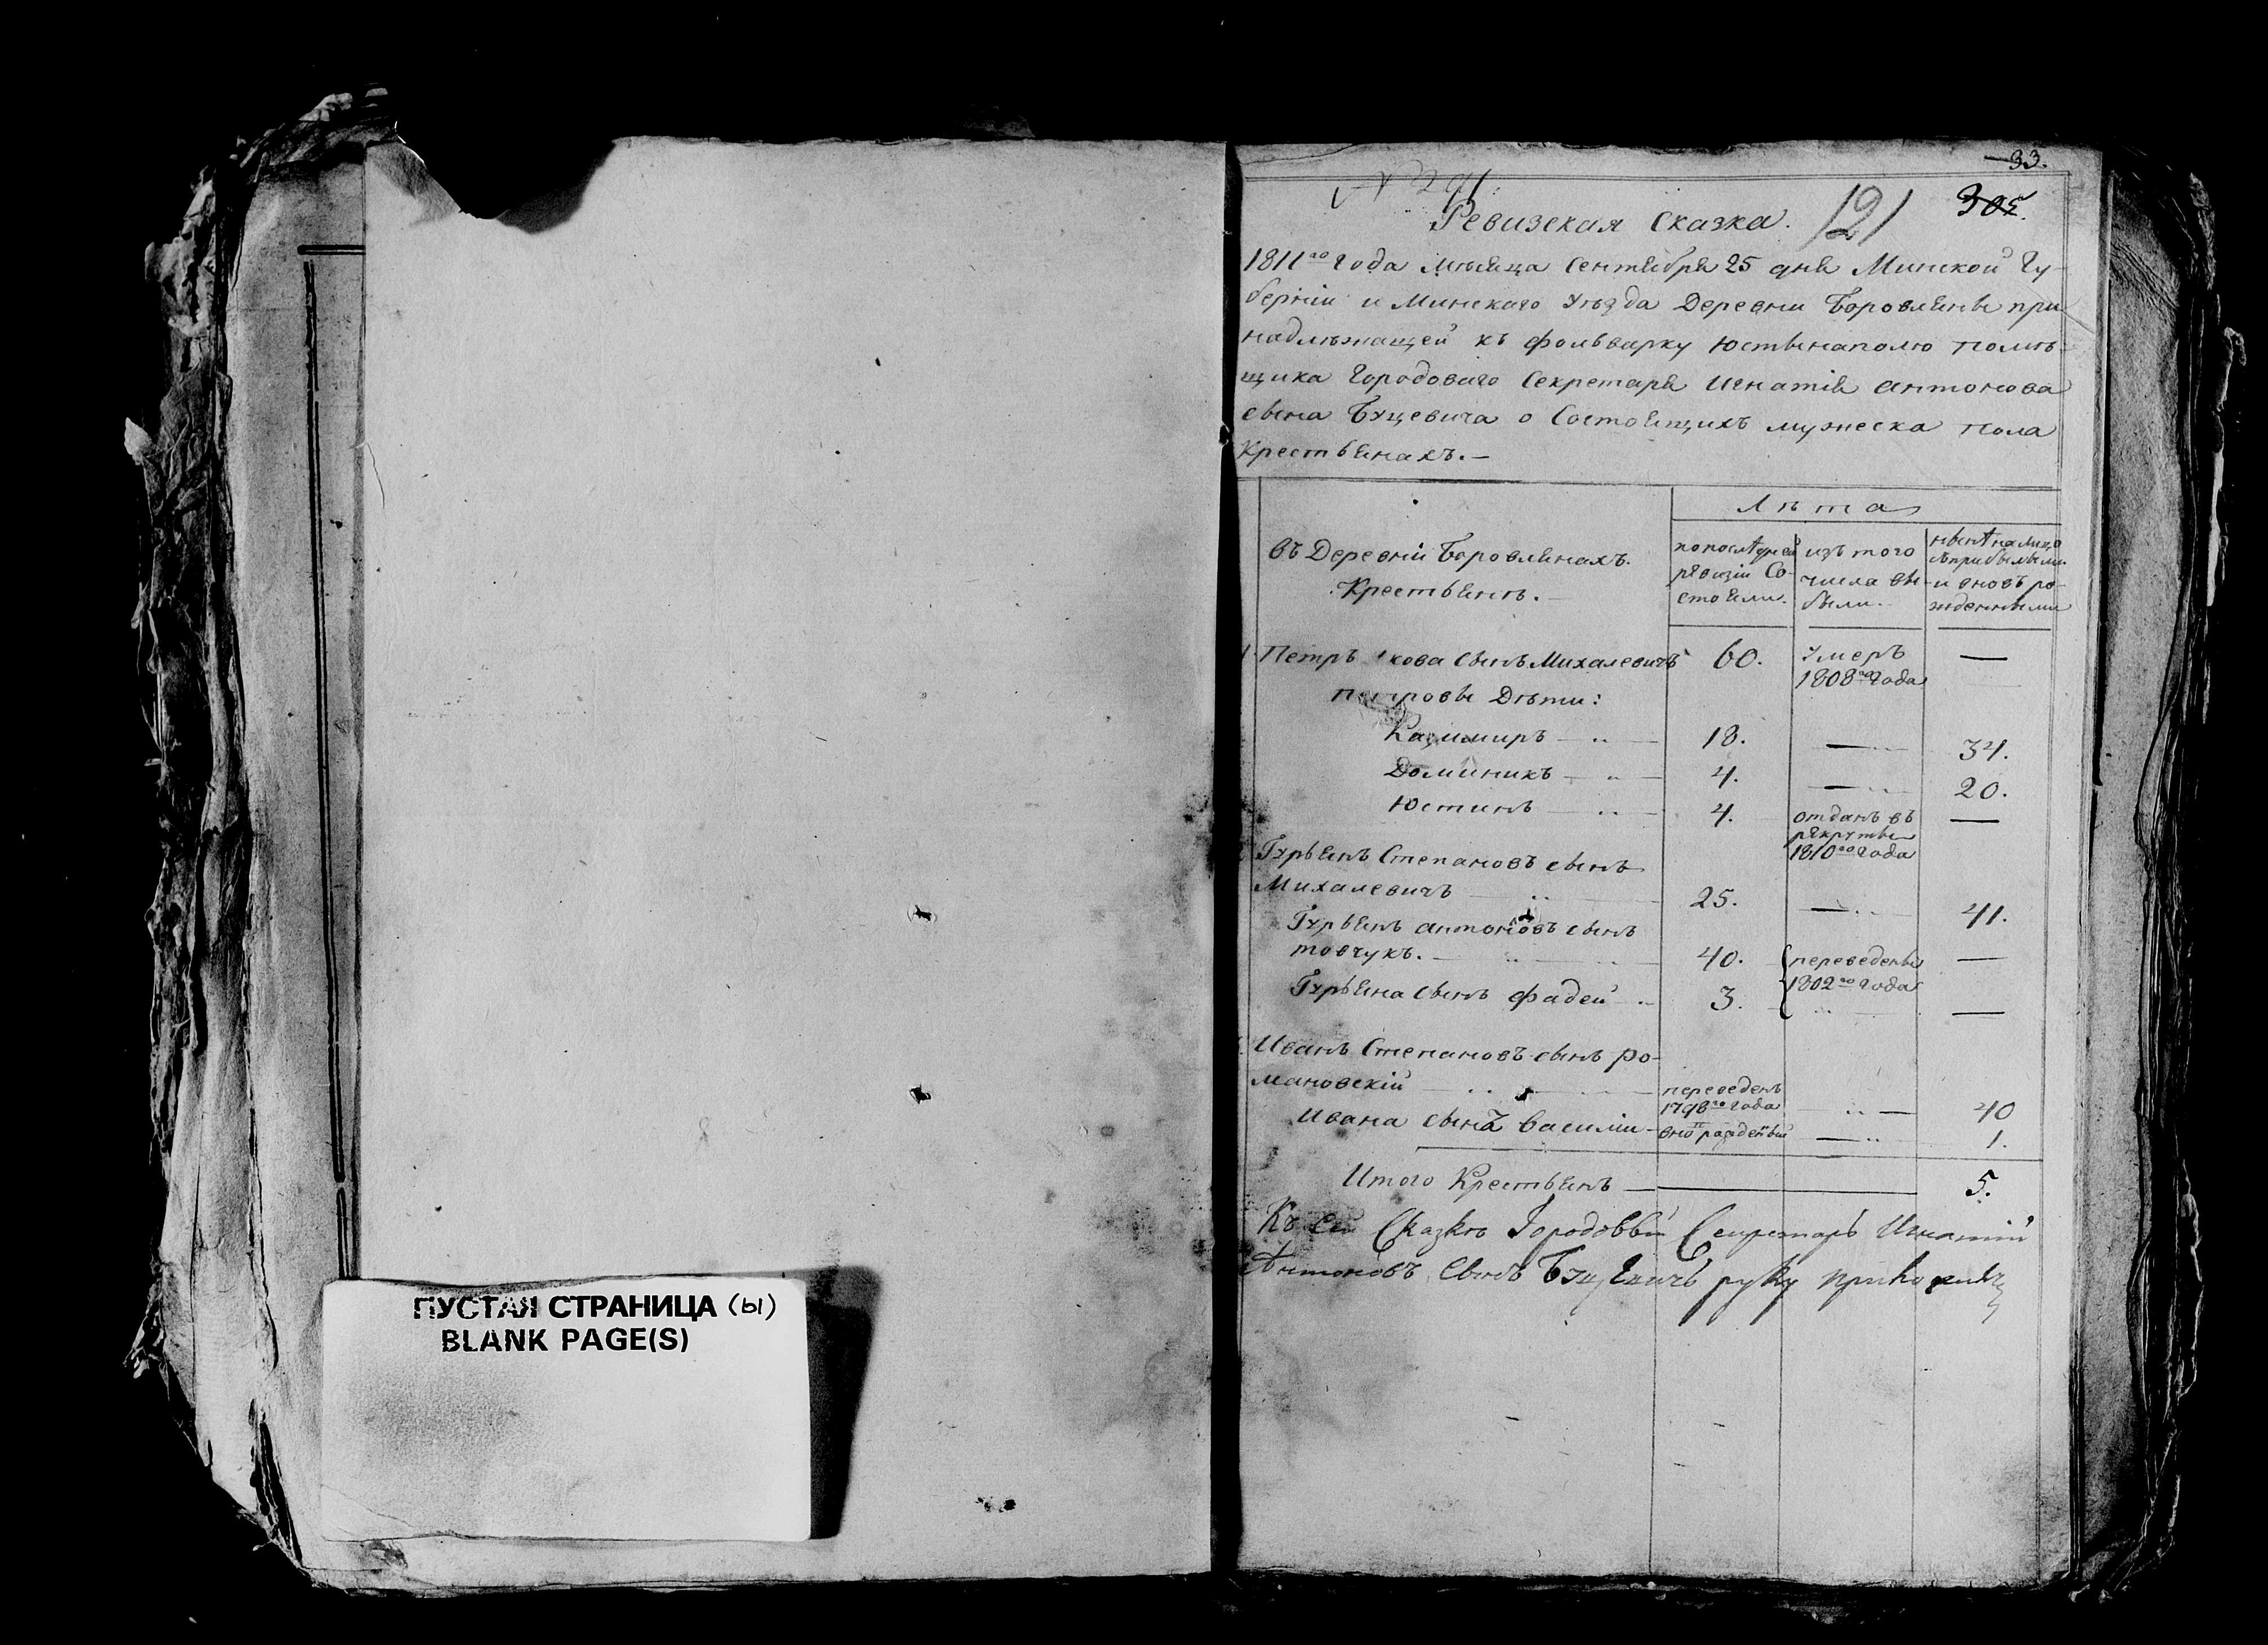 33.
№ 291.
121
305.
Ревизская Сказка.
1811го Года Мѣсяца Сентября 25 дня Минской Гу-
берніи и Минскаго Уѣзда Деревни Боровлянъ при
надлѣжащей къ фольварку Юстынаполю помѣ-
щика Городоваго Секретаря Игнатія антонова
сына Буцевича о Состоящихъ мужеска пола
Крестьянахъ.—
Лѣта
въ Деревнѣ Боровлянахъ.
Крестьянъ.—
по послѣдней
рѣвизіи Со-
стояли.
изъ того
числа вы-
были.—
нынѣ на лицо
съ прибылыми
и вновь ро-
жденными
1. Петръ кова сынъ Михалевичъ 60. Умеръ 1808го Года —
Петровы Дѣти:
Казимиръ — 18. — 34.
Доминикъ — 4. — 20.
Юстинъ — 4. отданъ въ рѣкруты 1810го Года —
Гурьянъ Степановъ сынъ
Михалевичъ — 25. — 41.
Гурьянъ антоновъ сынъ
товчукъ.— 40. переведены —
Гурьяна сынъ фадей 3. 1802го Года —
Иванъ Степановъ сынъ ро-
мановскій — переведенъ 1798го Года — 40
Ивана сынъ василій — — 1.
Итого Крестьянъ — 5.
Къ сей Сказкѣ Городовый Секретарь Игнатій
Антоновъ Сынъ Буцевичъ руку приложилъ
ПУСТАЯ СТРАНИЦА (Ы)
BLANK PAGE(S)